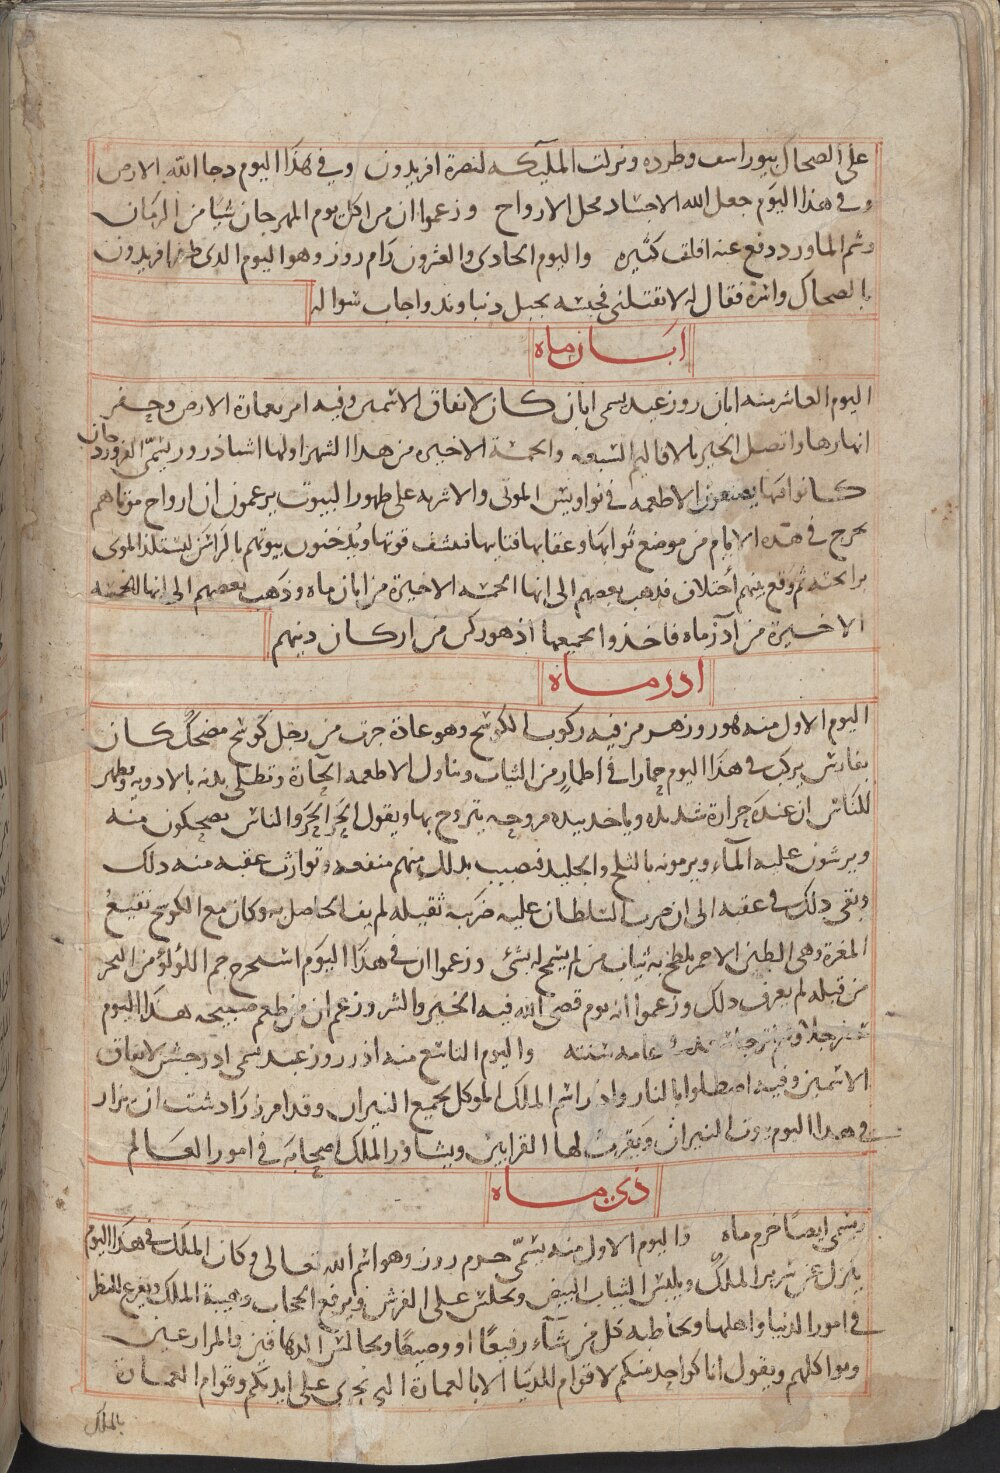 على الضحاك بيوراسف وطرده ونزلت الملآئكه لنصرة افريدون وفي هذا اليوم دحا الله الارض
وفي هذا اليوم جعل الله الاجساد محل الارواح وزعموا ان من اكل يوم المهرجان شيا من الرمان
وشم الماورد دفع عنه افات كثيره واليوم الحادى والعشرون رام روز وهو اليوم الذى ظفر افريدون
بالضحاك واسره فقال له لا تقتلنى فحبسه بجبل دنباوند واجاب سواله
ابان ماه
اليوم العاشر منه ابان روز عيد يسمى ابان كان لاتفاق الاسمين وفيه امر بعمارة الارض وحفر
انهارها واتصل الخبر بالاقاليم السبعه والخمسة الاخيره من هذا الشهر اولها اشتاذ روز يسمى الفروردجان
كانوا فيها يضعون الاطعمه في نواويس الموتى والاشربه على ظهور البيوت يزعمون ان ارواح موتاهم
تخرج في هذه الايام من موضع ثوابها وعقابها فتاتيها فتنشف قوتها ويدخنون بيوتهم بالراسن ليستلذ الموتى
برائحته ثم وقع بينهم اختلاف فذهب بعضهم الى انها الخمسه الاخيرة من ابان ماه وذهب بعضهم الى انها الخمسه
الاخيرة من آذر ماه فاخذوا بجميعها اذ هو ركن من اركان دينهم
ادر ماه
اليوم الاول منه هو روز هرمز فيه ركوب الكوسج وهو عادة جرت من رجل كوسج مضحك كان
بفارس يركب في هذا اليوم حمارا في اطمار من الثياب ويتناول الاطعمه الحارة وتطلى بدنه بالادويه ويظهر
للناس ان عنده حرارة شديده وياخذ بيده مروحه يتروح بها ويقول الحر الحر والناس يضحكون منه
ويرشون عليه المآء ويرمونه بالثلج والجليد فيصيب بذلك منهم منفعه وتوارث عقبه منه ذلك
وبقى ذلك في عقبه الى ان ضرب السلطان عليه ضريبه ثقيله لم يف الحاصل به وكان مع الكوسج نقيع
المغرة وهى الطين الاحمر يلطخ به ثياب من لم يسمح له بشئ وزعموا ان في هذا اليوم استخرج جم اللؤلؤ من البحر
من قبله لم يعرف ذلك وزعموا انه يوم قضى الله فيه الخير والشر وزعم ان من طعم صبيحه هذا اليوم
سفرجلا وشم اترجا عامه سنته واليوم التاسع منه اذر روز عيد يسمى اذرجشن لاتفاق
الاسمين وفيه اصطلوا بالنار واذر اسم الملك الموكل بجميع النيران وقد امر زرادشت ان تزار
في هذا اليوم بيوت النيران ويقرب لها القرابين ويشاور الملك اصحابه في امور العالم
ذى ماه
ويسمى ايضا خرم ماه واليوم الاول منه يسمّى خرم روز وهو اسم الله تعالى وكان الملك في هذا اليوم
ينزل عن سرير الملك ويلبس الثياب البيض ويجلس على الفرش ويرفع الحجاب وهيبة الملك ويتفرغ للنظر
في امور الدنيا واهلها ويخاطبه كل من شآء رفيعا او وضيعا ويجالس الدهاقين والمزارعين
ويواكلهم ويقول انا كواحد منكم لا قوام للدنيا الا بالعمارة التي تجري على ايديكم وقوام العمارة
بالملك